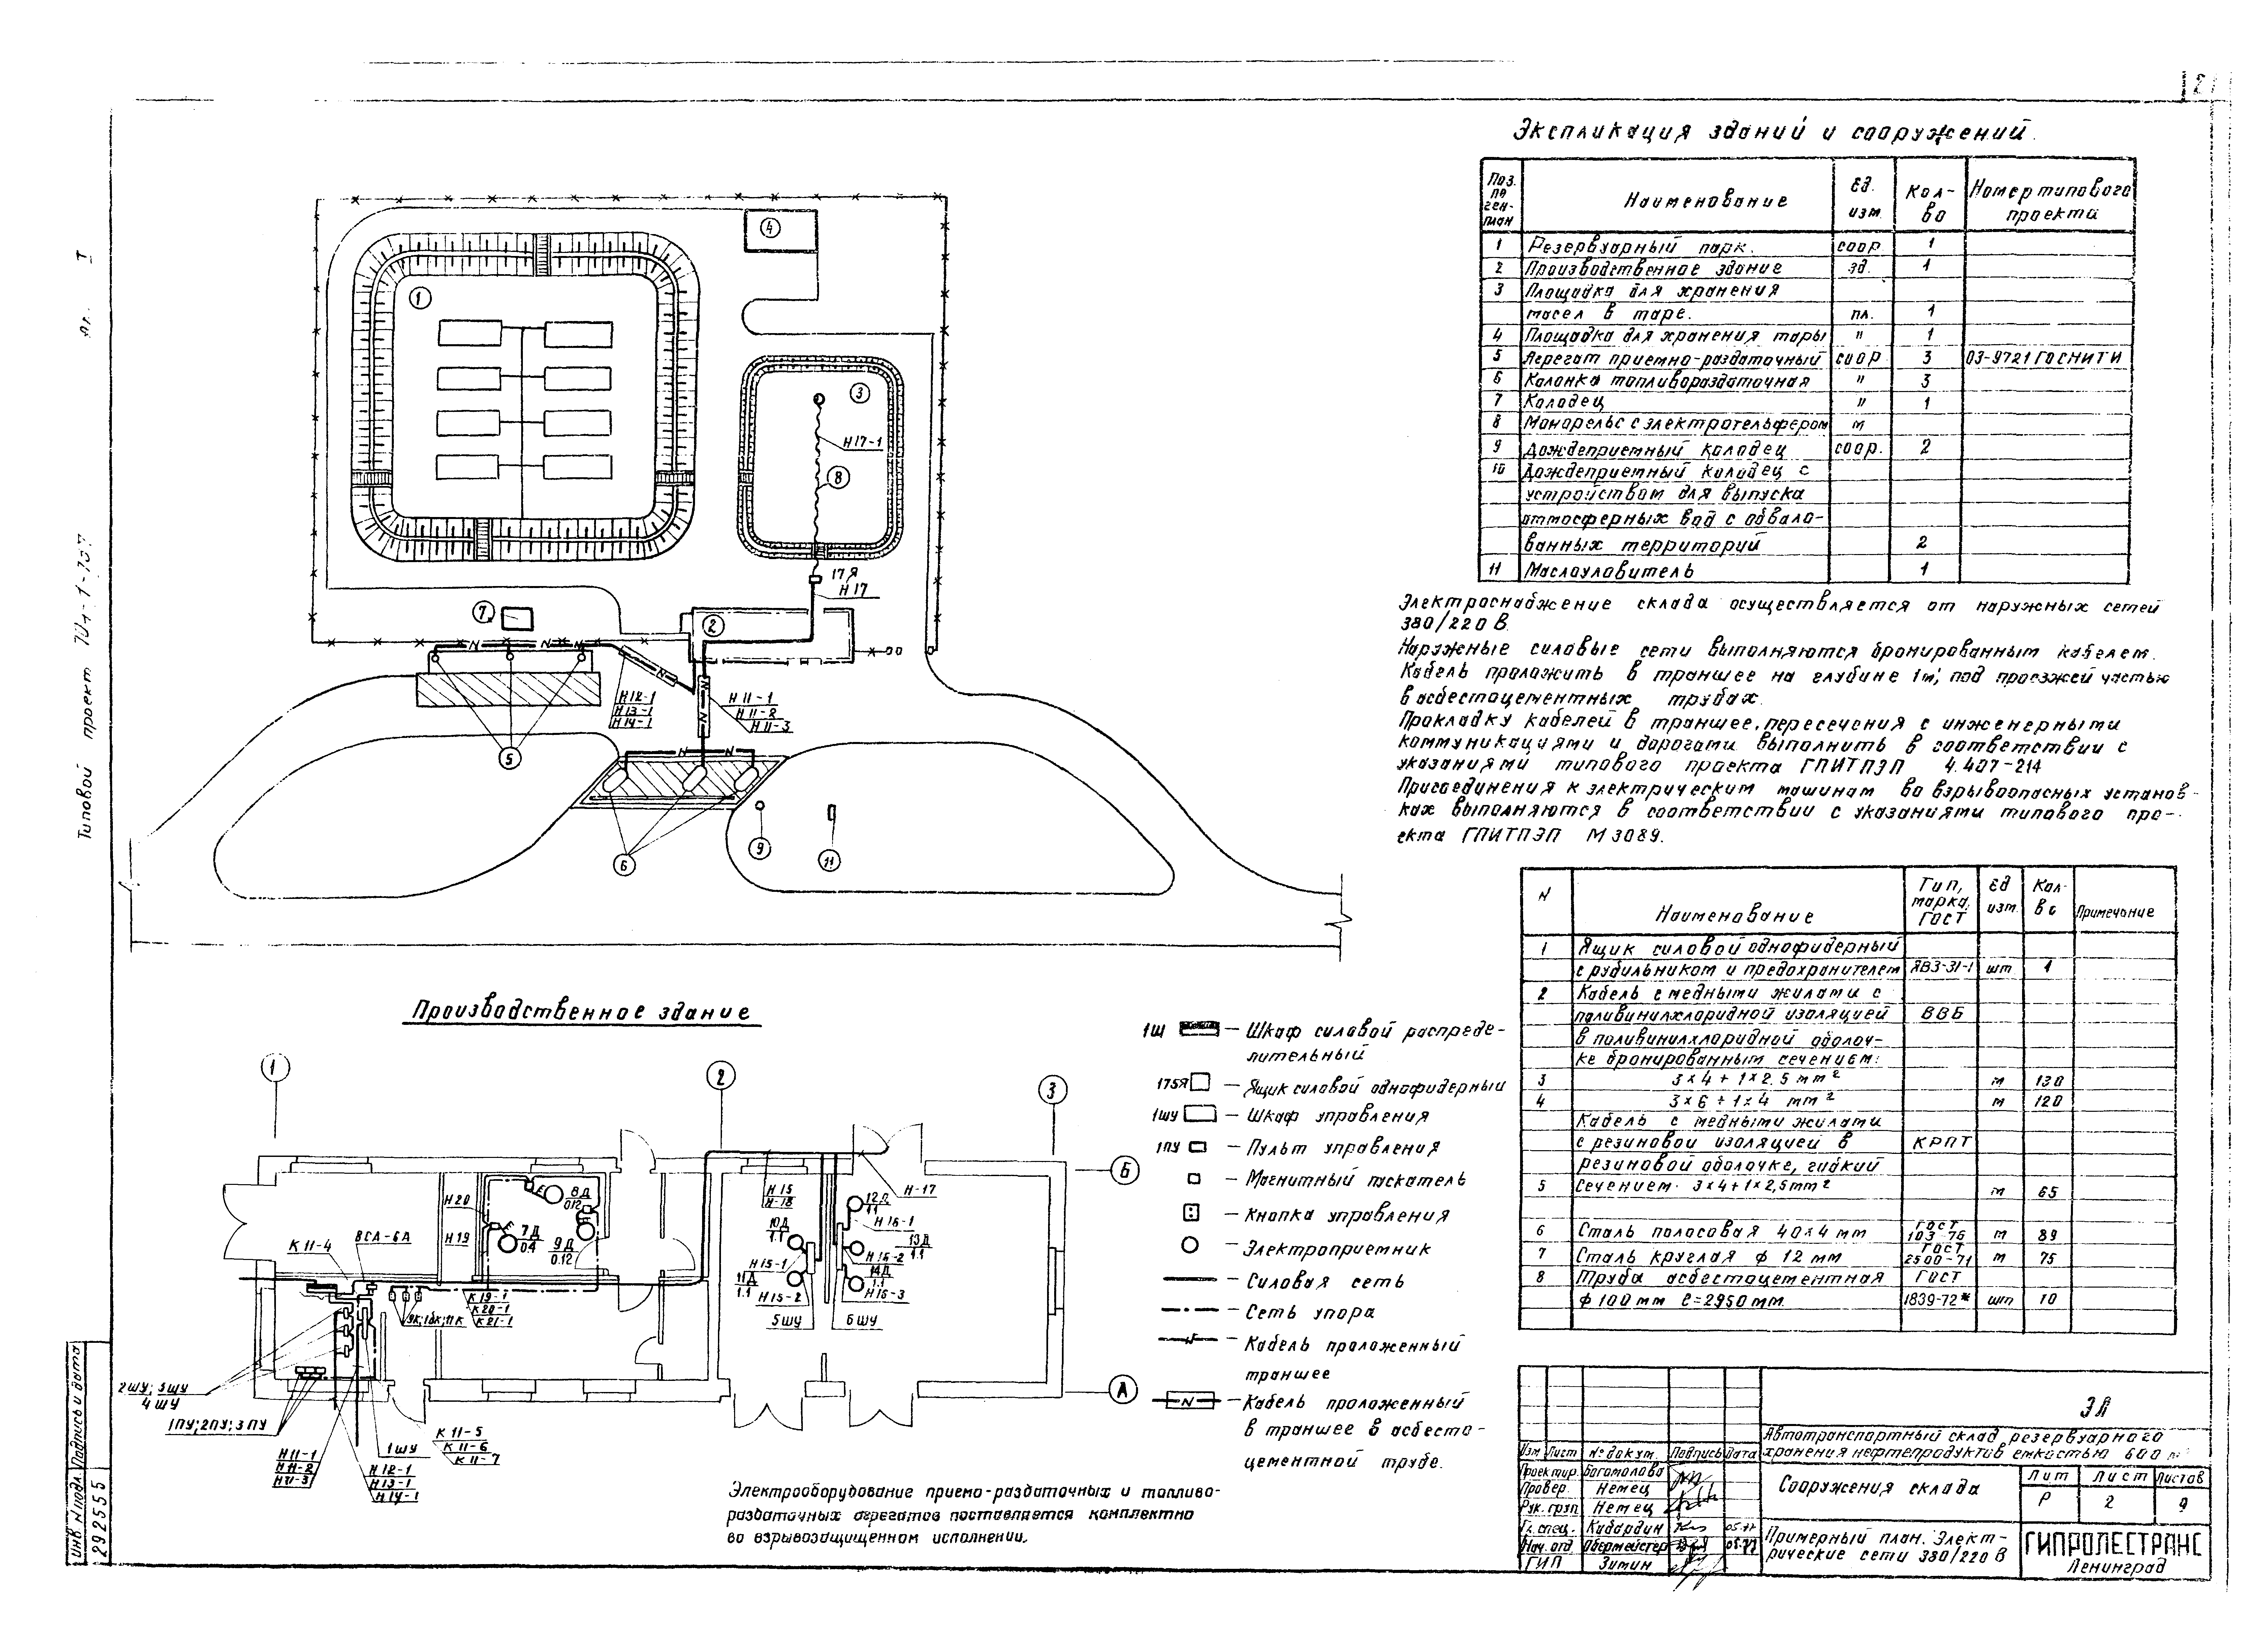 2
Экспликация зданий и сооружений.
Поз. по ген-план
Наименование
Ед. изм.
Кол-во
Номер типового проекта
1 Резервуарный парк. соор 1
2 Производственное здание зд. 1
3 Площадка для хранения
масел в таре. пл. 1
4 Площадка для хранения тары " 1
5 Агрегат приемно-раздаточный соор 3 03-9721 ГОСНИТИ
6 Колонка топливораздаточная " 3
7 Колодец " 1
8 Монорельс с электротельфером м
9 Дождеприемный колодец соор. 2
10 Дождеприемный колодец с
устройством для выпуска
атмосферных вод с обвало-
ванных территорий 2
11 Маслоуловитель 1
Электроснабжение склада осуществляется от наружных сетей
380/220 В.
Наружные силовые сети выполняются бронированным кабелем.
Кабель проложить в траншее на глубине 1м, под проезжей частью
в асбестоцементных трубах.
Прокладку кабелей в траншее, пересечения с инженерными
коммуникациями и дорогами выполнить в соответствии с
указаниями типового проекта ГПИТПЭП 4.407-214
Присоединения к электрическим машинам во взрывоопасных установ-
ках выполняются в соответствии с указаниями типового про-
екта ГПИТПЭП М3089.
N
Наименование
Тип, марка, ГОСТ
Ед изм.
Кол-во
Примечание
1 Ящик силовой однофидерный
с рубильником и предохранителем ЯВЗ-31-1 шт 1
2 Кабель с медными жилами с
поливинилхлоридной изоляцией ВВБ
в поливинилхлоридной оболоч-
ке бронированным сечением:
3 3×4+1×2.5 мм² м 130
4 3×6+1×4 мм² м 120
Кабель с медными жилами
с резиновой изоляцией в КРПТ
резиновой оболочке, гибкий
5 Сечением 3×4+1×2,5мм² м 65
6 Сталь полосовая 40×4 мм ГОСТ 103-76 м 89
7 Сталь круглая ф 12 мм ГОСТ 2500-71 м 75
8 Труба асбестоцементная ГОСТ
ф 100мм ℓ=2950 мм. 1839-72* шт 10
1
2
3
4
5
6
7
8
9
11
Н17-1
17Я
Н17
Н12-1
Н13-1
Н14-1
Н11-1
Н11-2
Н11-3
Производственное здание
1
2
3
Б
А
Н20
Н19
8Д
0.12
7Д
0.4
9Д
0.12
К11-4
ВСА-6А
9К;10К;11К
К19-1
К20-1
К21-1
Н15
Н-18
Н-17
10Д
1.1
11Д
1.1
Н15-1
Н15-2
5ШУ
6ШУ
12Д
1.1
Н16-1
13Д
1.1
Н16-2
14Д
1.1
Н16-3
2ШУ; 3ШУ
4ШУ
1ПУ;2ПУ;3ПУ
Н11-1
Н11-2
Н11-3
1ШУ
Н12-1
Н13-1
Н14-1
К11-5
К11-6
К11-7
1Щ — Шкаф силовой распреде-
лительный
175Я — Ящик силовой однофидерный
1ШУ — Шкаф управления
1ПУ — Пульт управления
— Магнитный пускатель
— Кнопка управления
— Электроприемник
— Силовая сеть
— Сеть упора
— Кабель проложенный
траншее
— Кабель проложенный
в траншее в асбесто-
цементной трубе.
Электрооборудование приемо-раздаточных и топливо-
раздаточных агрегатов поставляется комплектно
во взрывозащищенном исполнении.
ЭЛ
Автотранспортный склад резервуарного
хранения нефтепродуктов емкостью 600 м³
Изм. Лист № докум. Подпись Дата
Проектир. Богомолова
Провер. Немец
Рук. груп. Немец
Гл. спец. Кабардин 05.77
Нач. отд. Обермейстер 05.77
ГИП Зимин
Сооружения склада
Лит Лист Листов
Р 2 9
Примерный план. Элект-
рические сети 380/220 В
ГИПРОЛЕСТРАНС
Ленинград
Типовой проект
Инв. N подл. Подпись и дата
292555